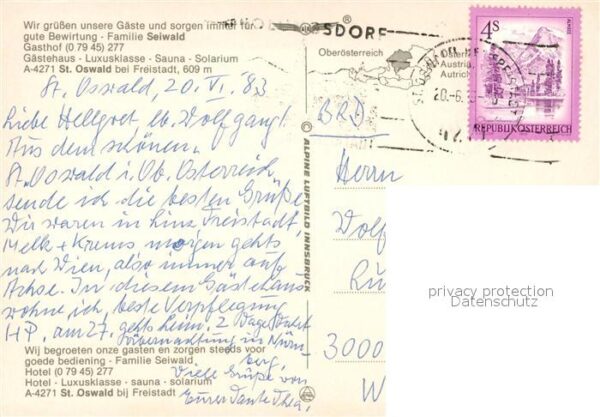 Wir grüßen unsere Gäste und sorgen immer für
gute Bewirtung - Familie Seiwald
Gasthof (0 79 45) 277
Gästehaus - Luxusklasse - Sauna - Solarium
A-4271 St. Oswald bei Freistadt, 609 m
St. Oswald, 20. VI. 83
Liebe Hellgret lb. Wolfgang!
Aus dem schönen
St. Oswald i. Ob. Österreich
sende ich die besten Grüße
Wir waren in Linz Freistadt
Melk + Krems morgen gehts
nach Wien, also immer auf
Achse. In diesem Gästehaus
wohne ich, beste Verpflegung
HP. am 27. gehts heim. 2 Tage
Übernachtung in Nürn-
berg.
Viele Grüße von
Eurer Tante Thea,
Wij begroeten onze gasten en zorgen steeds voor
goede bediening - Familie Seiwald
Hotel (0 79 45) 277
Hotel - Luxusklasse - sauna - solarium
A-4271 St. Oswald bij Freistadt
ALPINE LUFTBILD INNSBRUCK
SDORF
Oberösterreich
Austria,
4S
REPUBLIK ÖSTERREICH
BRD
Herrn
3000
W
privacy protection
Datenschutz